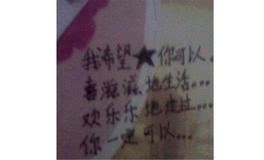 我希望★你可以..
喜滋滋地生活...
欢乐乐地走过...
你一定可以...